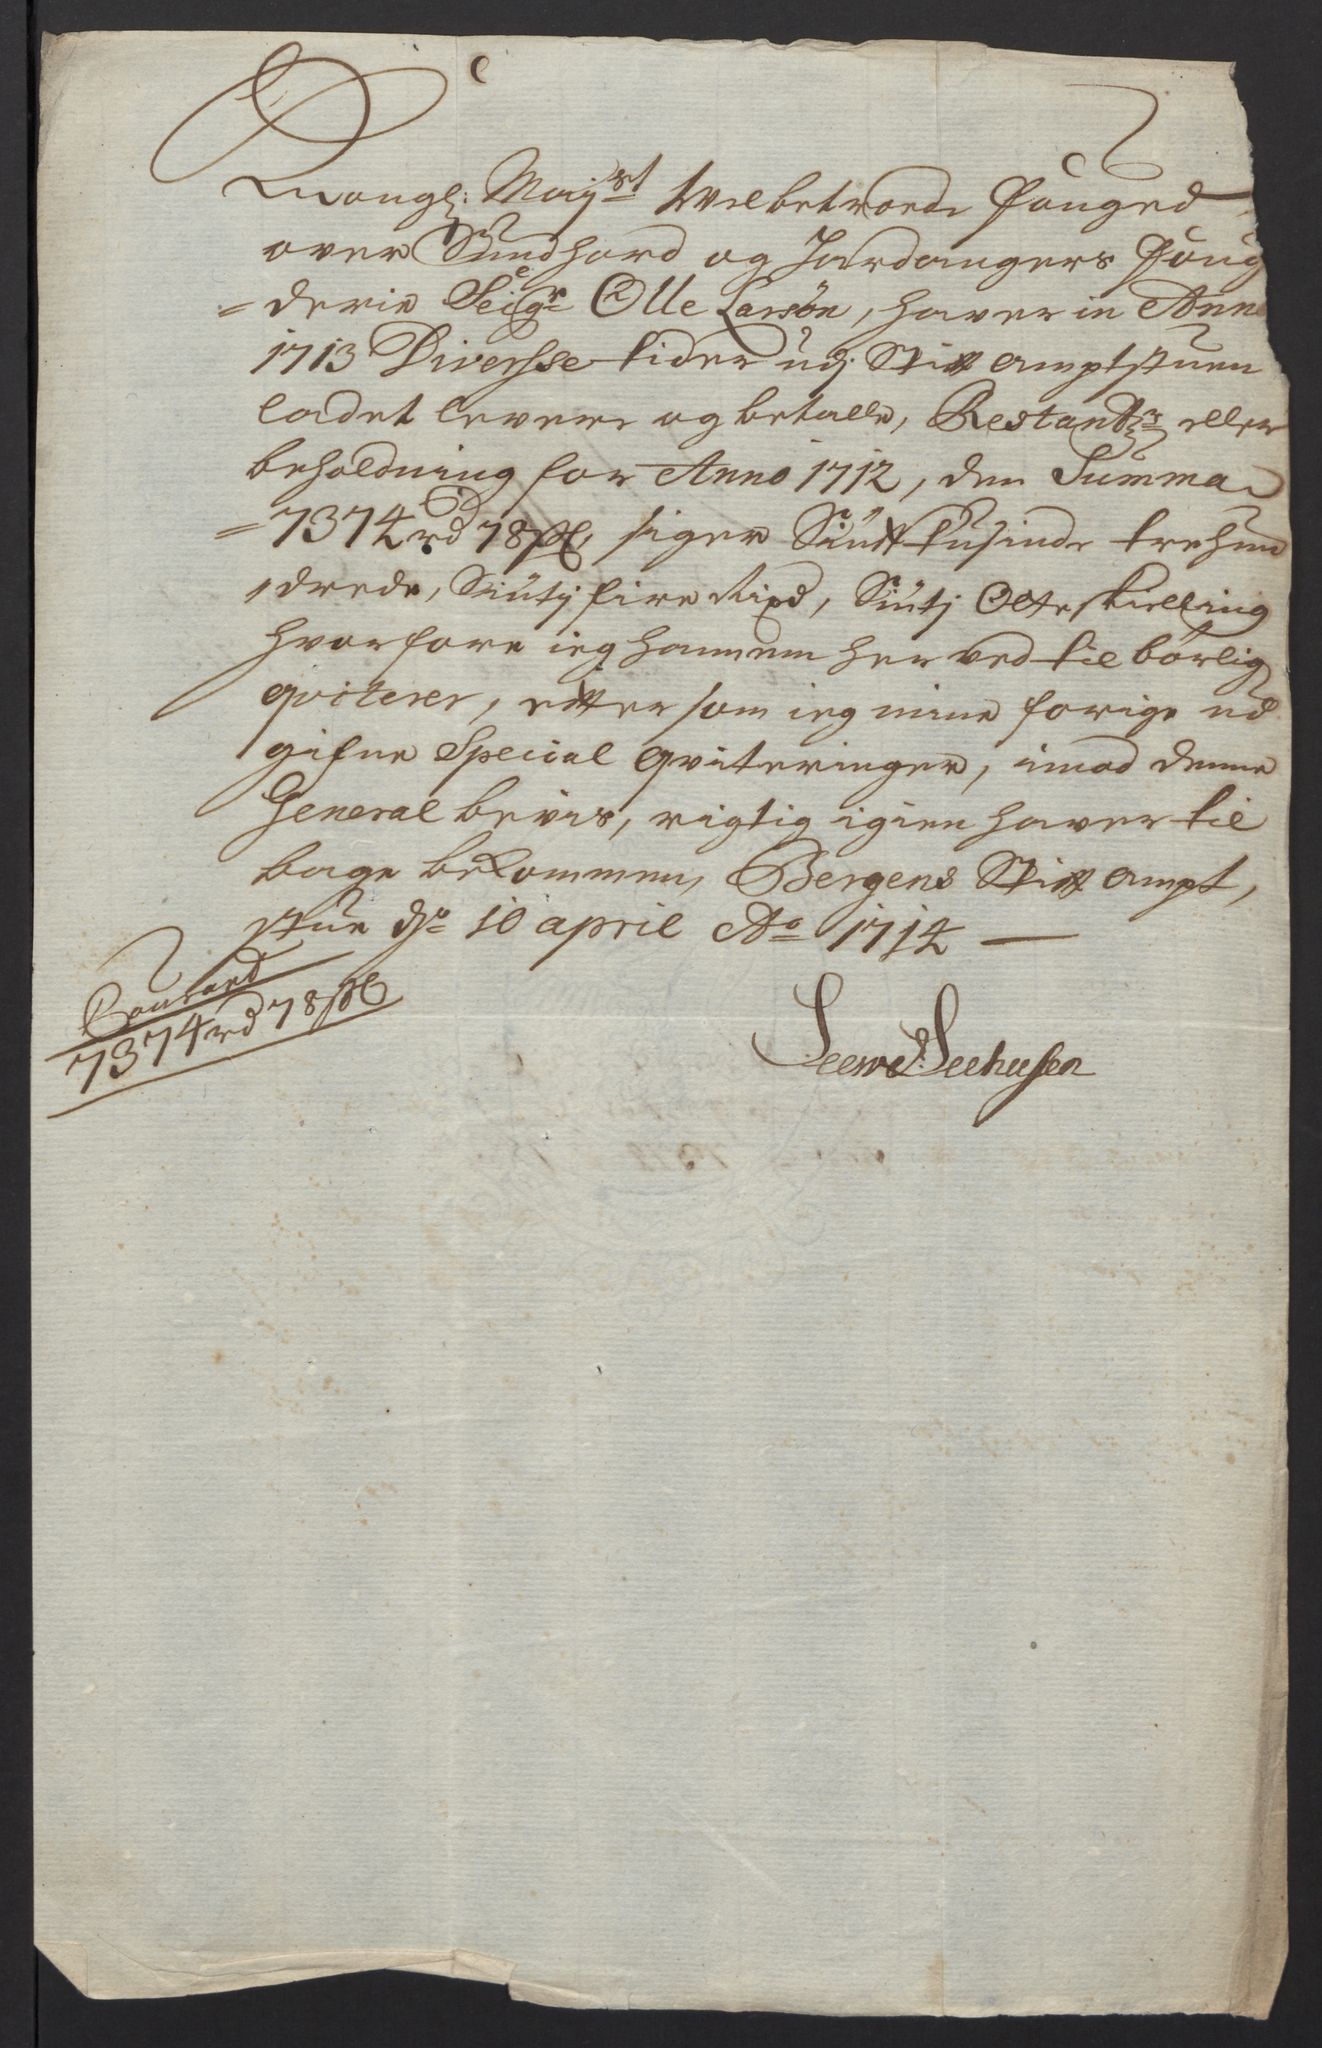 Kongl: Maÿst Welbetroede Fouged
over Sundhord og Hardangers Foug
= derie Seigr Olle Larsøn, haver in Anno
1713 Diversse tider udj Stift amptstuen
ladet levere og betalle, Restantz eller
beholdning for Anno 1712, den Summa
= 7374 rd 78 sk, siger Siuf tusinde trehun
drede, Siutÿ fire Rixd, Siutj Otte skielling
hvorfore ieg hannem her ved til børlig
qviterer, efter som ieg mine forige ud
gifne Special qviteringer, imod denne
General bevis, rigtig igien haver til
bage bekommen, Bergens Stift ampt,
stue dn 10 april Ao 1714
7374 rd 78 sk
Seehusen